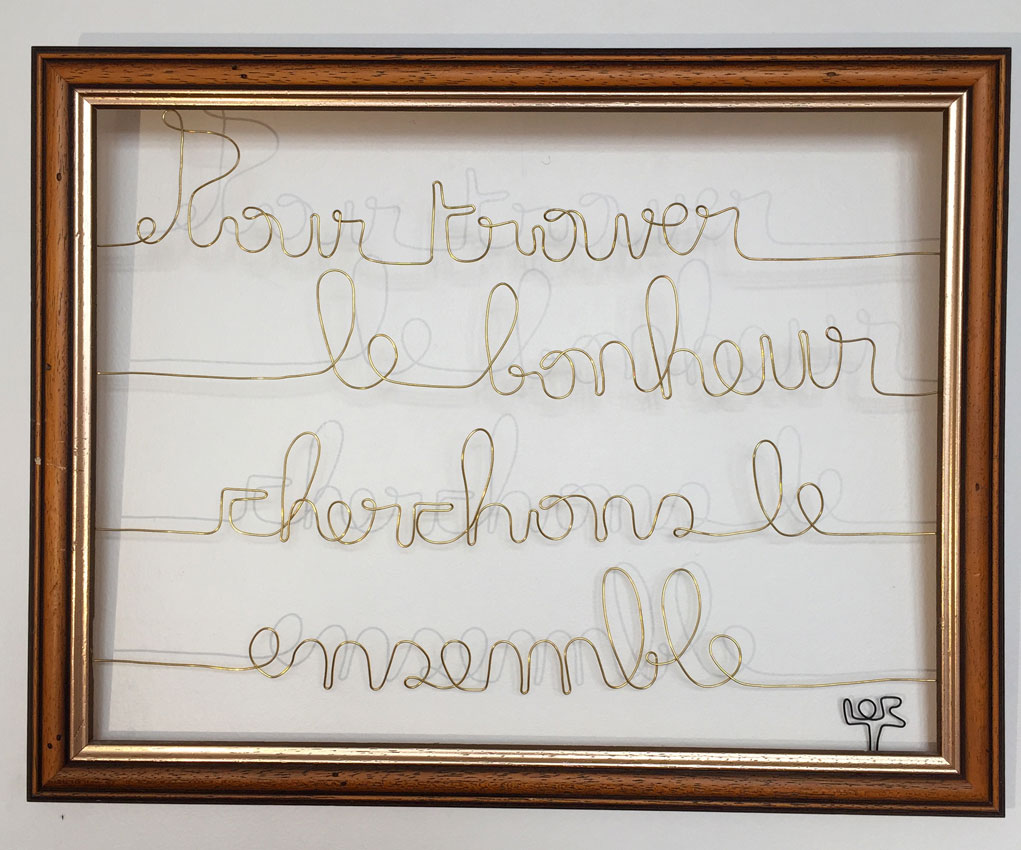 Pour trouver
le bonheur
cherchons le
ensemble
LOR